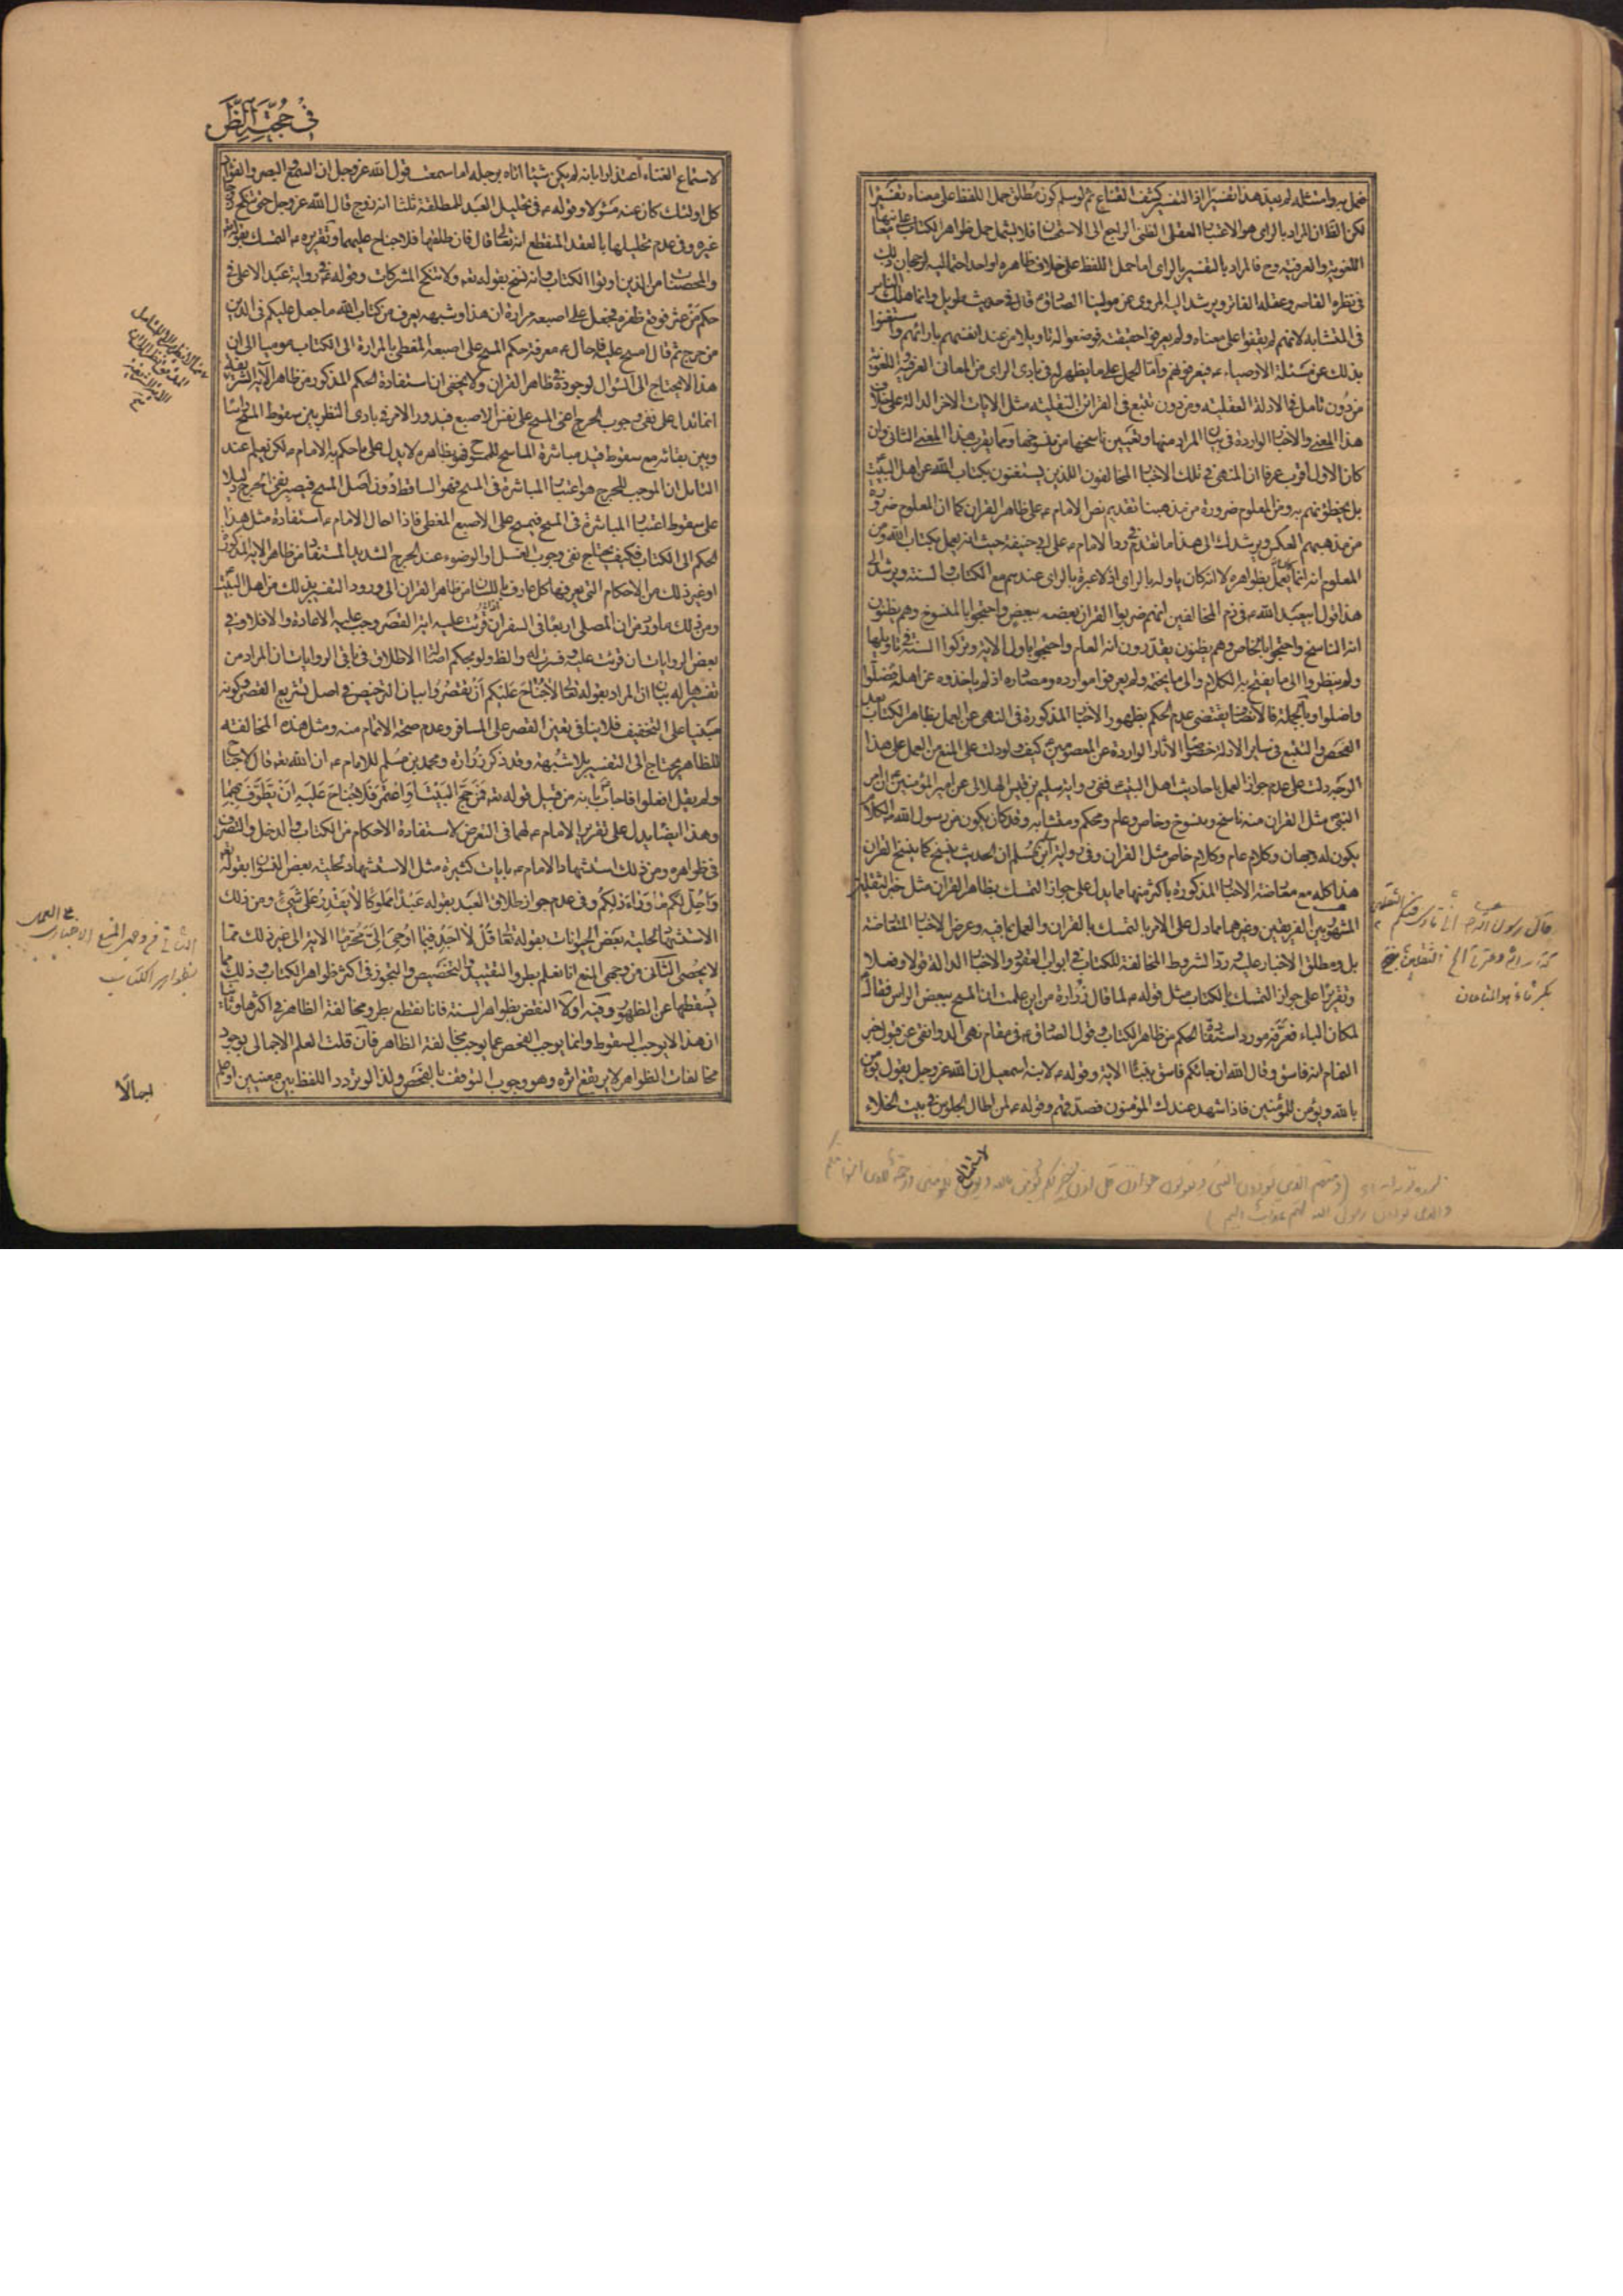 فحمل به وامثاله لم يعد هذا تفسيرا اذ التفسير كشف القناع ثم لو سلم كون مطلق حمل اللفظ على معناه تفسيرا
لكن الظ ان المراد بالراى هو الاعتبار العقلى الظنى الراجع الى الاستحسان فلا يشمل حمل ظواهر الكتاب على معانيها
اللغوية والعرفية وح فالمراد بالتفسير بالراى اما حمل اللفظ على خلاف ظاهره او احد احتماليه لرجحان ذلك
فى نظره القاصر وعقله الفاتر ويرشد اليه المروى عن مولينا الصادق ع قال فى حديث طويل وانما هلك الناس
فى المتشابه لانهم لم يقفوا على معناه ولم يعرفوا حقيقته فوضعوا له تاويلا من عند انفسهم بارائهم واستغنوا
بذلك عن مسئلة الاوصياء ع فيعرفونهم واما الحمل على ما يظهر له فى بادى الراى من المعانى العرفية واللغوية
من دون تامل فى الادلة العقلية ومن دون تتبع فى القرائن النقلية مثل الايات الاخر الدالة على خلاف
هذا المعنى والاخبار الواردة فى بيان المراد منها وتعيين ناسخها من منسوخها ومما يقرب هذا المعنى الثانى وان
كان الاول اقرب عرفا ان المنهى فى تلك الاخبار المخالفون الذين يستغنون بكتاب الله عن اهل البيت
بل يخطئونهم به ومن المعلوم ضرورة من مذهبنا تقديم نص الامام ع على ظاهر القران كما ان المعلوم ضرورة
من مذهبهم العكس ويرشدك الى هذا ما تقدم فى رد الامام ع على ابى حنيفة حيث انه يعمل بكتاب الله ومن
المعلوم انه انما كان يعمل بظواهره لا انه كان ياوله بالراى اذ لا عبرة بالراى عندهم مع الكتاب والسنة ويرشد الى
هذا قول ابيعبد الله ع فى ذم المخالفين انهم ضربوا القران بعضه ببعض واحتجوا بالمنسوخ وهم يظنون
انه الناسخ واحتجوا بالخاص وهم يظنون يقدرون انه العام واحتجوا باول الاية وتركوا السنة فى تاويلها
ولم ينظروا الى ما يفتح به الكلام والى ما يختمه ولم يعرفوا موارده ومصادره اذ لم ياخذوه عن اهله فضلوا
واضلوا وبالجملة فالانصاف يقتضى عدم الحكم بظهور الاخبار المذكورة فى النهى عن العمل بظاهر الكتاب بعد
الفحص والتتبع فى ساير الادلة خصوصا الآثار الواردة عن المعصومين ع كيف ولو دلت على المنع من العمل على هذا
الوجه دلت على عدم جواز العمل باحاديث اهل البيت ع ففى رواية سليم بن قيس الهلالى عن امير المؤمنين ع ان امر
النبى مثل القران منه ناسخ ومنسوخ وخاص وعام ومحكم ومتشابه وقد كان يكون من رسول الله ص الكلام
يكون له وجهان وكلام عام وكلام خاص مثل القران وفى رواية ابن مسلم ان الحديث ينسخ كما ينسخ القران
هذا كله مع معارضة الاخبار المذكورة باكثر منها مما يدل على جواز التمسك بظاهر القران مثل خبر الثقلين
المشهور بين الفريقين وغيرهما مما دل على الامر بالتمسك بالقران والعمل بما فيه وعرض الاخبار المتعارضة
بل ومطلق الاخبار عليه ورد الشروط المخالفة للكتاب فى ابواب العقود والاخبار الدالة قولا وفعلا
وتقريرا على جواز التمسك بالكتاب مثل قوله ع لما قال زرارة من اين علمت ان المسح ببعض الراس فقال ع
لمكان الباء فعرفه مورد استفادة الحكم من ظاهر الكتاب وقول الصادق ع فى مقام نهى الدوانقى عن قبول خبر
النمام انه فاسق وقال الله ان جائكم فاسق بنبأ الاية وقوله ع لابنه اسمعيل ان الله عز وجل يقول يؤمن
بالله ويؤمن للمؤمنين فاذا شهد عندك المؤمنون فصدقهم وقوله ع لمن اطال الجلوس فى بيت الخلاء
لاستماع
قال رسول الله ص انى تارك فيكم الثقلين
كتاب الله وعترتى الخ
فى حجية الظن
لاستماع الغناء اعتذارا بانه لم يكن شيئا اتاه برجله اما سمعت قول الله عز وجل ان السمع والبصر والفؤاد
كل اولئك كان عنه مسئولا وقوله ع فى تحليل العبد للمطلقة ثلثا انه زوج قال الله عز وجل حتى تنكح زوجا
غيره وفى عدم تحليلها بالعقد المنقطع انه تعالى قال فان طلقها فلا جناح عليهما وتقريره ع التمسك بقوله تعالى
والمحصنات من الذين اوتوا الكتاب وانه نسخ بقوله تعه ولا تنكحوا المشركات وقوله ع فى رواية عبد الاعلى فى
حكم من عثر فوقع ظفره فجعل على اصبعه مرارة ان هذا وشبهه يعرف من كتاب الله ما جعل عليكم فى الدين
من حرج ثم قال امسح عليه فاحال ع معرفة حكم المسح على اصبعه المغطى بالمرارة الى الكتاب موميا الى ان
هذا لا يحتاج الى السؤال لوجوده فى ظاهر القران ولا يخفى ان استفادة الحكم المذكور من ظاهر الآية الشريفة
انما تدل على نفى وجوب الحرج اعنى المسح على نفس الاصبع فيدور الامر فى بادى النظر بين سقوط المسح راسا
وبين بقائه مع سقوط قيد مباشرة الماسح للممسوح فهو بظاهره لا يدل على ما حكم به الامام ع لكن يعلم عند
التامل ان الموجب للحرج هو اعتبار المباشرة فى المسح فهو الساقط دون اصل المسح فيصير نفى الحرج دليلا
على سقوط اعتبار المباشرة فى المسح فيمسح على الاصبع المغطى فاذا احال الامام ع استفادة مثل هذا
الحكم الى الكتاب فكيف يحتاج نفى وجوب الغسل او الوضوء عند الحرج الشديد المستفاد من ظاهر الاية المذكورة
او غير ذلك من الاحكام التى يعرفها كل عارف باللسان من ظاهر القران الى ورود التفسير بذلك من اهل البيت
ومن ذلك ما ورد من ان المصلى اربعا فى السفر ان قرئت عليه اية القصر وجب عليه الاعادة والا فلا وفى
بعض الروايات ان قرئت عليه وفسرت له والظ ولو بحكم اصالة الاطلاق فى باقى الروايات ان المراد من
تفسيرها له بيان ان المراد بقوله تعالى لا جناح عليكم ان تقصروا بيان الترخيص فى اصل تشريع القصر وكونه
مبنيا على التخفيف فلا ينافى تعين القصر على المسافر وعدم صحة الاتمام منه ومثل هذه المخالفة
للظاهر يحتاج الى التفسير بلا شبهة وقد ذكر زرارة ومحمد بن مسلم للامام ع ان الله تعه قال لا جناح
ولم يقل افعلوا فاجاب ع بانه من قبيل قوله تعه فمن حج البيت او اعتمر فلا جناح عليه ان يطوف بهما
وهذا ايضا يدل على تقرير الامام ع لهما فى التعرض لاستفادة الاحكام من الكتاب والدخل والتصرف
فى ظواهره ومن ذلك استشهاد الامام ع بايات كثيرة مثل الاستشهاد لحلية بعض النسوان بقوله تعه
واحل لكم ما وراء ذلكم وفى عدم جواز طلاق العبد بقوله عبدا مملوكا لا يقدر على شئ ومن ذلك
الاستشهاد لحلية بعض الحيوانات بقوله تعالى قل لا اجد فيما اوحى الى محرما الاية الى غير ذلك مما
لا يحصى الثانى من وجهى المنع انا نعلم بطرو التقييد والتخصيص والتجوز فى اكثر ظواهر الكتاب وذلك مما
يسقطها عن الظهور وفيه اولا النقض بظواهر السنة فانا نقطع بطرو مخالفة الظاهر فى اكثرها وثانيا
ان هذا لا يوجب السقوط وانما يوجب الفحص عما يوجب مخالفة الظاهر فان قلت العلم الاجمالى بوجود
مخالفات الظواهر لا يرتفع اثره وهو وجوب التوقف بالفحص ولذا لو تردد اللفظ بين معنيين او علم
اجمالا
الثانى فى وجه المنع الاخبارى عن العمل
بظواهر الكتاب